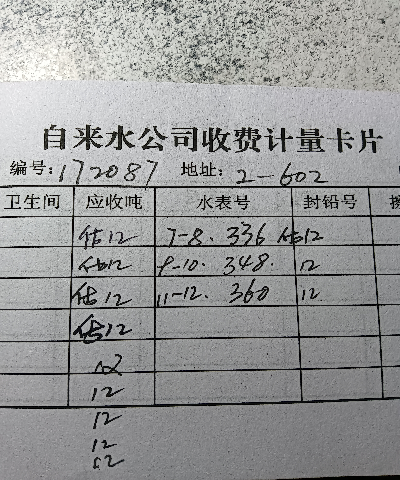 自来水公司收费计量卡片
编号:172087 地址:2-602
卫生间 应收吨 水表号 封铅号
估12 7-8. 336 估12
估12 9-10. 348. 12
估12 11-12. 360 12
估12
12
12
12
12
12